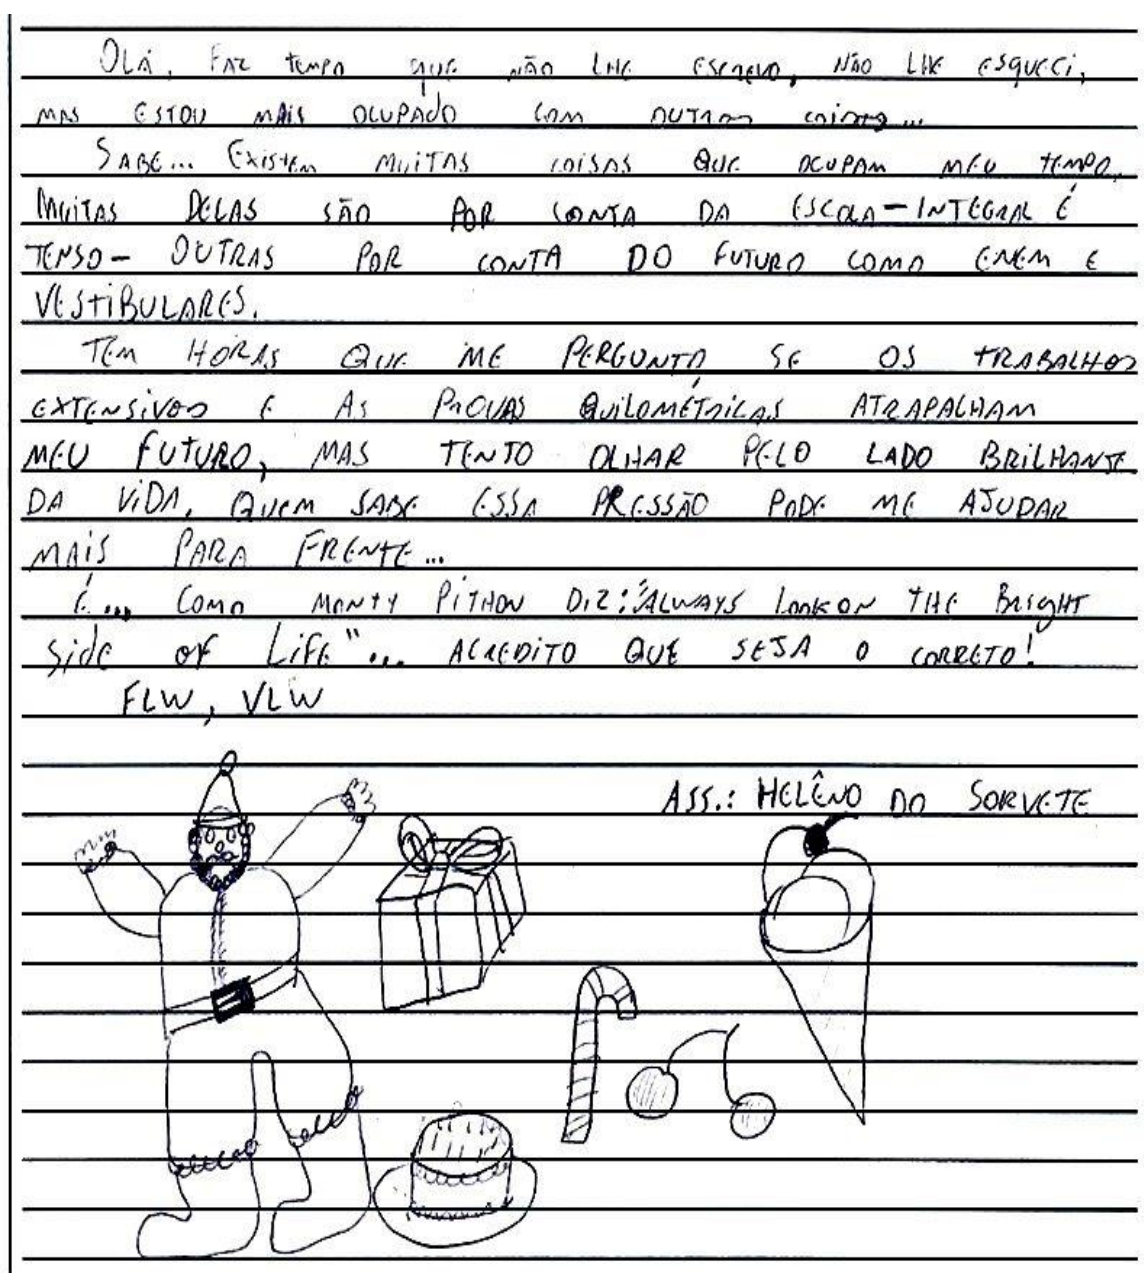 Olá, faz tempo que não lhe escrevo, não lhe esqueci,
mas estou mais ocupado com outras coisas...
Sabe... Existem muitas coisas que ocupam meu tempo,
Muitas delas são por conta da escola-integral é
tenso- outras por conta do futuro como enem e
vestibulares.
Tem horas que me pergunto se os trabalhos
extensivos e as provas quilométricas atrapalham
meu futuro, mas tento olhar pelo lado brilhante
da vida, quem sabe essa pressão pode me ajudar
mais para frente...
É... Como Monty Pithon diz: "Always Look on the Bright
side of Life"... Acredito que seja o correto!
FLW, VLW
Ass.: Helêno do Sorvete